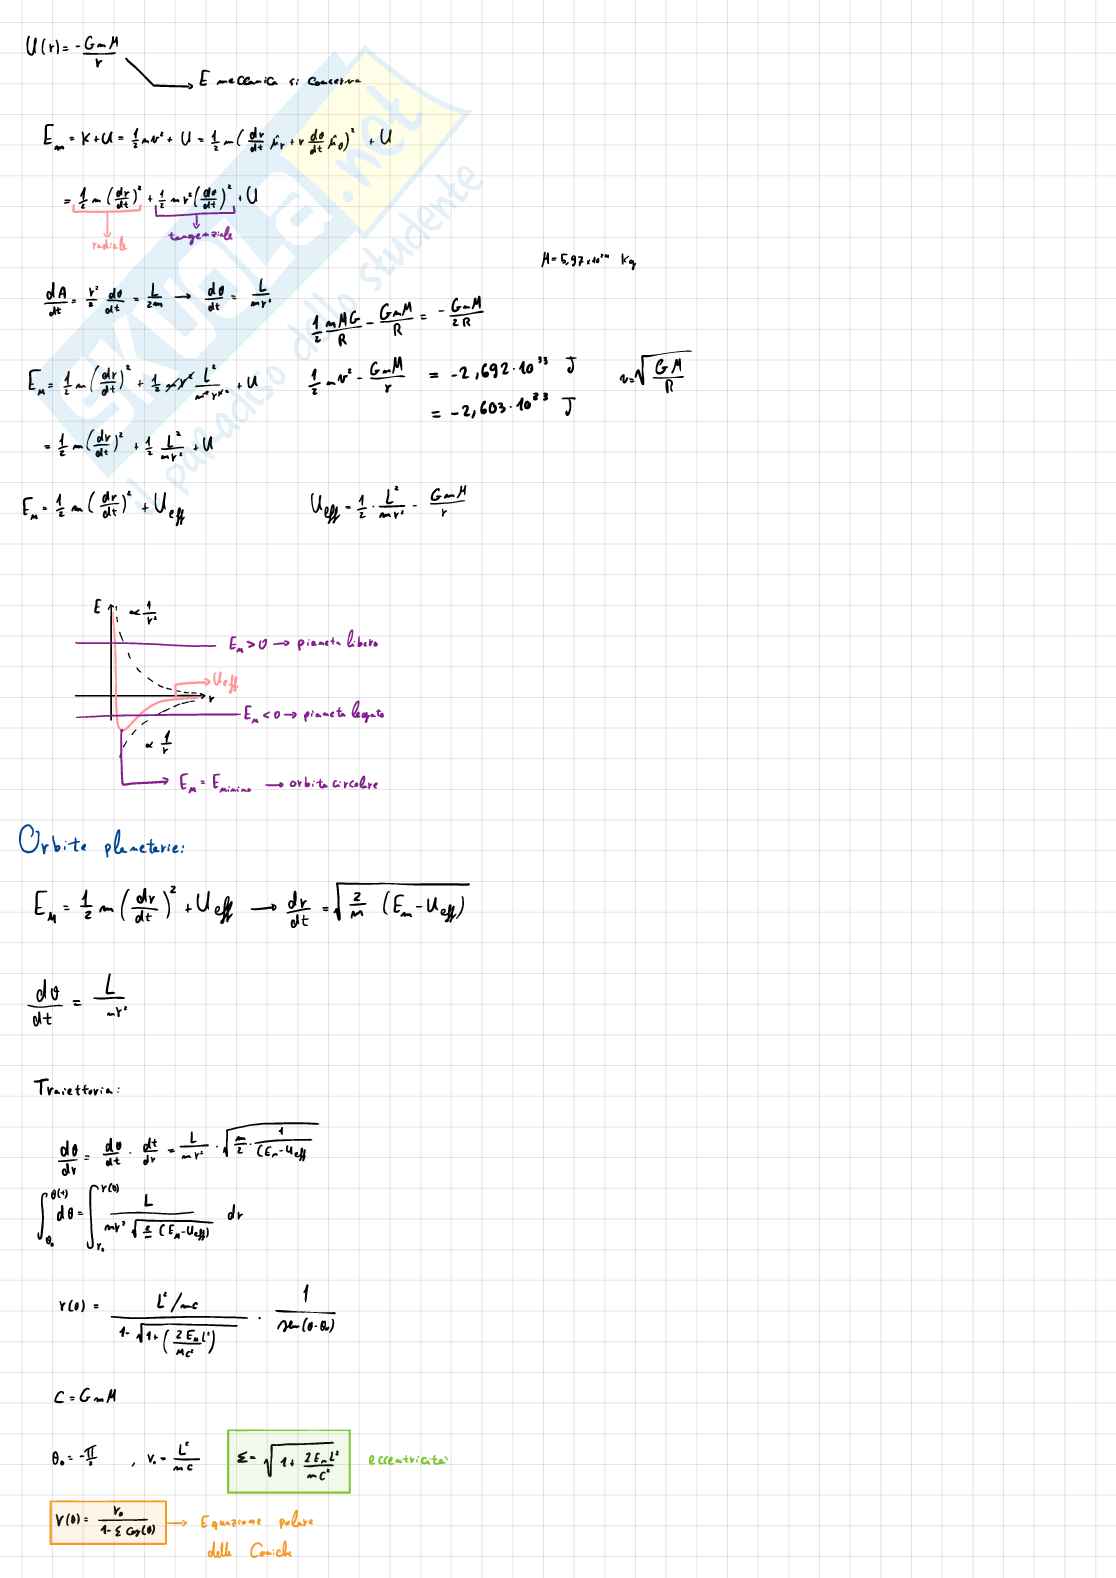 U(r) = - GmM/r
E meccanica si conserva
E_m = K+U = 1/2 mv² + U = 1/2 m (dr/dt û_r + r dθ/dt û_θ)² + U
= 1/2 m (dr/dt)² + 1/2 m r² (dθ/dt)² + U
radiale
tangenziale
M = 5,97×10²⁴ Kg
dA/dt = r²/2 dθ/dt = L/2m → dθ/dt = L/mr²
1/2 mMG/R - GmM/R = - GmM/2R
E_M = 1/2 m (dr/dt)² + 1/2 m r² L²/m²r⁴ + U
1/2 mv² - GmM/r = -2,692·10³³ J
v = √(GM/R)
= -2,603·10³³ J
= 1/2 m (dr/dt)² + 1/2 L²/mr² + U
E_M = 1/2 m (dr/dt)² + U_eff
U_eff = 1/2 · L²/mr² - GmM/r
E
∝ 1/r²
E_M > 0 → pianeta libero
U_eff
r
E_M < 0 → pianeta legato
∝ 1/r
E_M = E_minima → orbita circolare
Orbite planetarie:
E_M = 1/2 m (dr/dt)² + U_eff → dr/dt = √(2/m (E_m - U_eff))
dθ/dt = L/mr²
Traiettoria:
dθ/dr = dθ/dt · dt/dr = L/mr² · √(m/2 · 1/(E_m - U_eff))
∫_θ₀^θ(r) dθ = ∫_r₀^r(θ) L / (mr² √(2/m (E_M - U_eff))) dr
r(θ) = (L²/mc) / (1 - √(1 + (2E_m L²/mc²))) · 1/sen(θ-θ₀)
C = GmM
θ₀ = -π/2 , r₀ = L²/mc
Σ = √(1 + 2E_m L²/mC²)
eccentricità
r(θ) = r₀/(1 - Σ cos(θ)) → Equazione polare
delle Coniche
SKUOLA.net
il paradiso dello studente